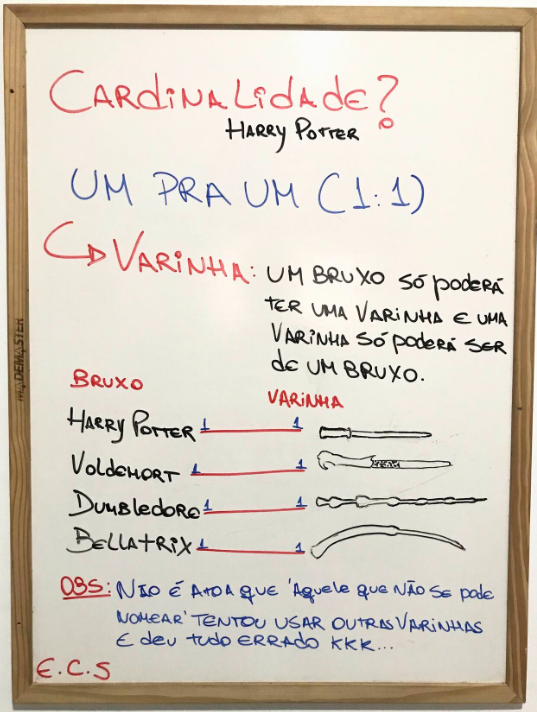 CARdiNALidAdE?
HARRY POTTER
UM PRA UM (1:1)
VARiNHA: UM BRUXO Só podERÁ
TER UMA VARiNHA E UMA
VARiNHA Só podERÁ SER
dE UM BRUXO.
BRUXO VARiNHA
HARRY POTTER 1 1
VoldEMORT 1 1
DUMBlEdORE 1 1
BEllATRiX 1 1
OBS: NÃO É ATOA QUE 'AQUElE QUE NÃO SE POdE
NOMEAR' TENTOU USAR OUTRAS VARiNHAS
E dEU TUdO ERRAdO KKK...
E.C.S
MADEMASTER